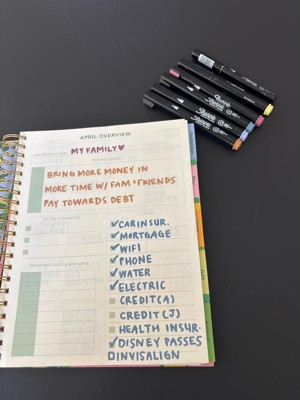 APRIL OVERVIEW
MY FAMILY♥
BRING MORE MONEY IN
MORE TIME W/ FAM + FRIENDS
PAY TOWARDS DEBT
CAR INSUR.
MORTGAGE
WIFI
PHONE
WATER
ELECTRIC
CREDIT (A)
CREDIT (J)
HEALTH INSUR.
DISNEY PASSES
INVISALIGN
Sharpie
Sharpie
Sharpie
Sharpie